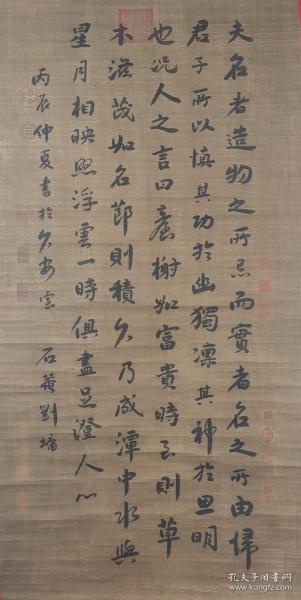 夫名者造物之所忌而實者名之所由歸
君子所以慎其功於幽獨凜其神於思明
也況人之言曰臺榭如富貴時至則草
木滋茂如名節則積久乃成潭中水與
星月相映照浮雲一時俱盡足澄人心
丙辰仲夏書於久安室 石菴劉墉
孔夫子旧书网
www.kongfz.com